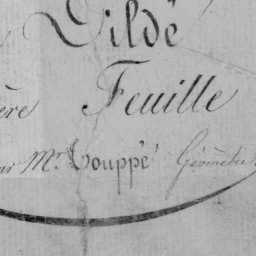 Dildé
ère Feuille
ar Mr. Louppé Géomètre